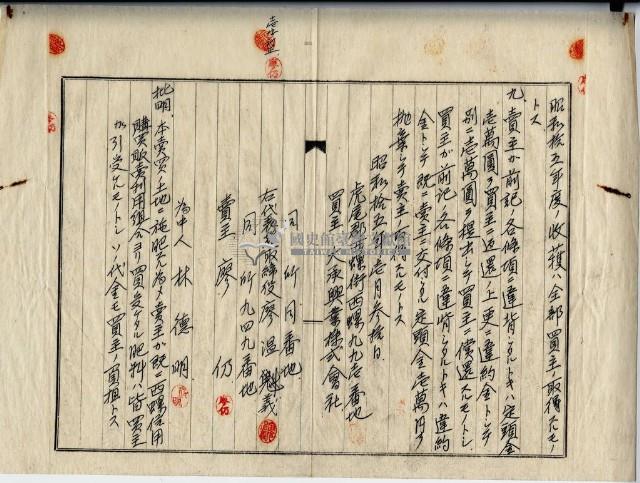 昭和拾五年度ノ收獲ハ全部買主ノ取得スルモノ
トス
九、賣主カ前記ノ各條項ニ違背シタルトキハ定頭金
壱萬圓ヲ買主ニ返還ノ上更ニ違約金トシテ
別ニ壱萬圓ヲ提出シテ買主ニ償還スルモノトシ
買主が前記ノ各條項ニ違背シタルトキハ違約
金トシテ既ニ賣主ニ交付シタル定頭金壱萬円ヲ
抛棄シテ賣主ノ所得スルモノトス
昭和拾五年壱月参拾日
虎尾郡西螺街西螺九九壱番地
買主 大承興業株式會社
同所同番地
右代表取締役 廖温魁義
同所九四九番地
賣主 廖 仍
為中人 林德明
批明 本賣買土地ニ施肥スル為メ賣主か既ニ西螺信用
購買販賣利用組合ヨリ買受ケタル肥料ハ皆買主
カ引受スルモノトシソノ代金モ買主ノ負担トス
國史館臺灣文獻館